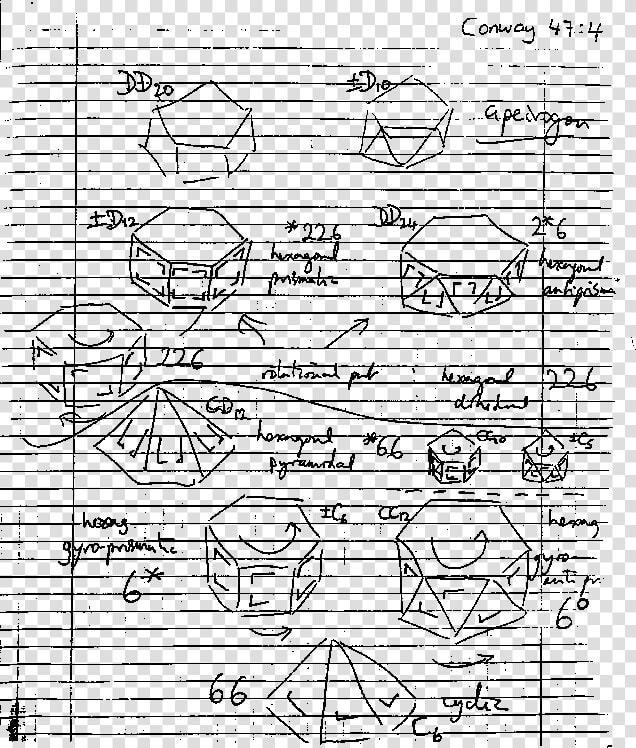 Conway 47:4
DD20
±D10
apeirogon
±D12
*226
hexagonal
prismatic
DD24
2*6
hexagonal
antiprisma
226
rotational part
hexagonal
dihedral
226
CD12
hexagonal
pyramidal
*66
CC10
±C5
hexag
gyro-prismatic
6*
±C6
CC12
hexag
gyro-
anti pr.
6°
66
C6
cyclic